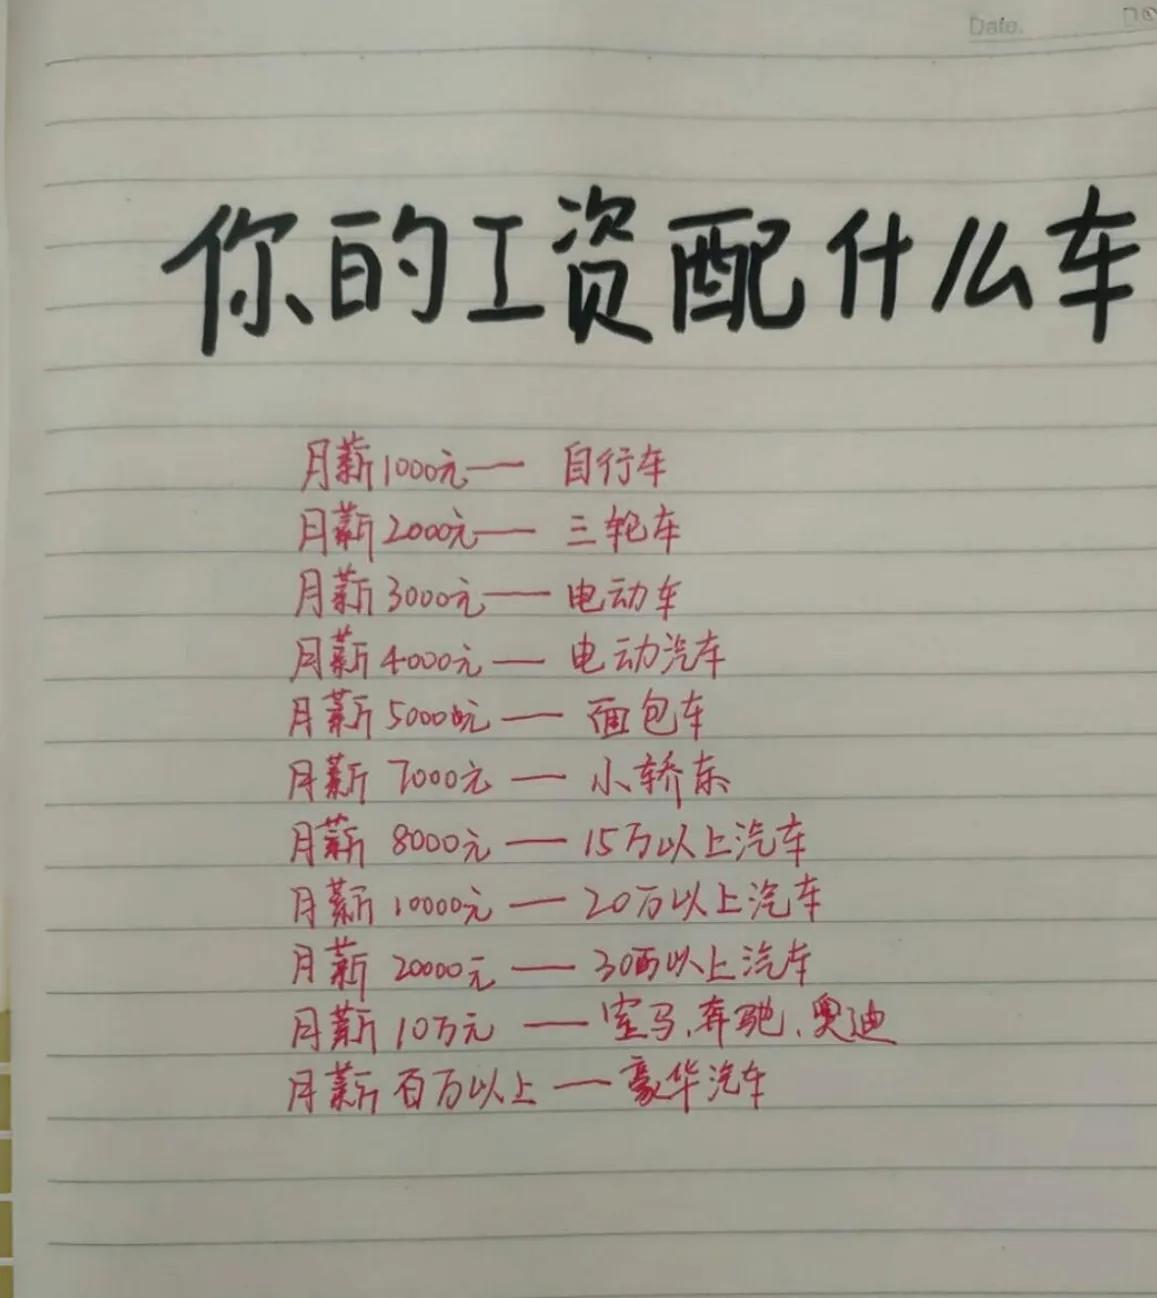 Date.
你的工资配什么车
月薪1000元— 自行车
月薪2000元— 三轮车
月薪3000元— 电动车
月薪4000元— 电动汽车
月薪5000元— 面包车
月薪7000元— 小轿车
月薪8000元— 15万以上汽车
月薪10000元— 20万以上汽车
月薪20000元— 30万以上汽车
月薪10万元— 宝马、奔驰、奥迪
月薪百万以上— 豪华汽车